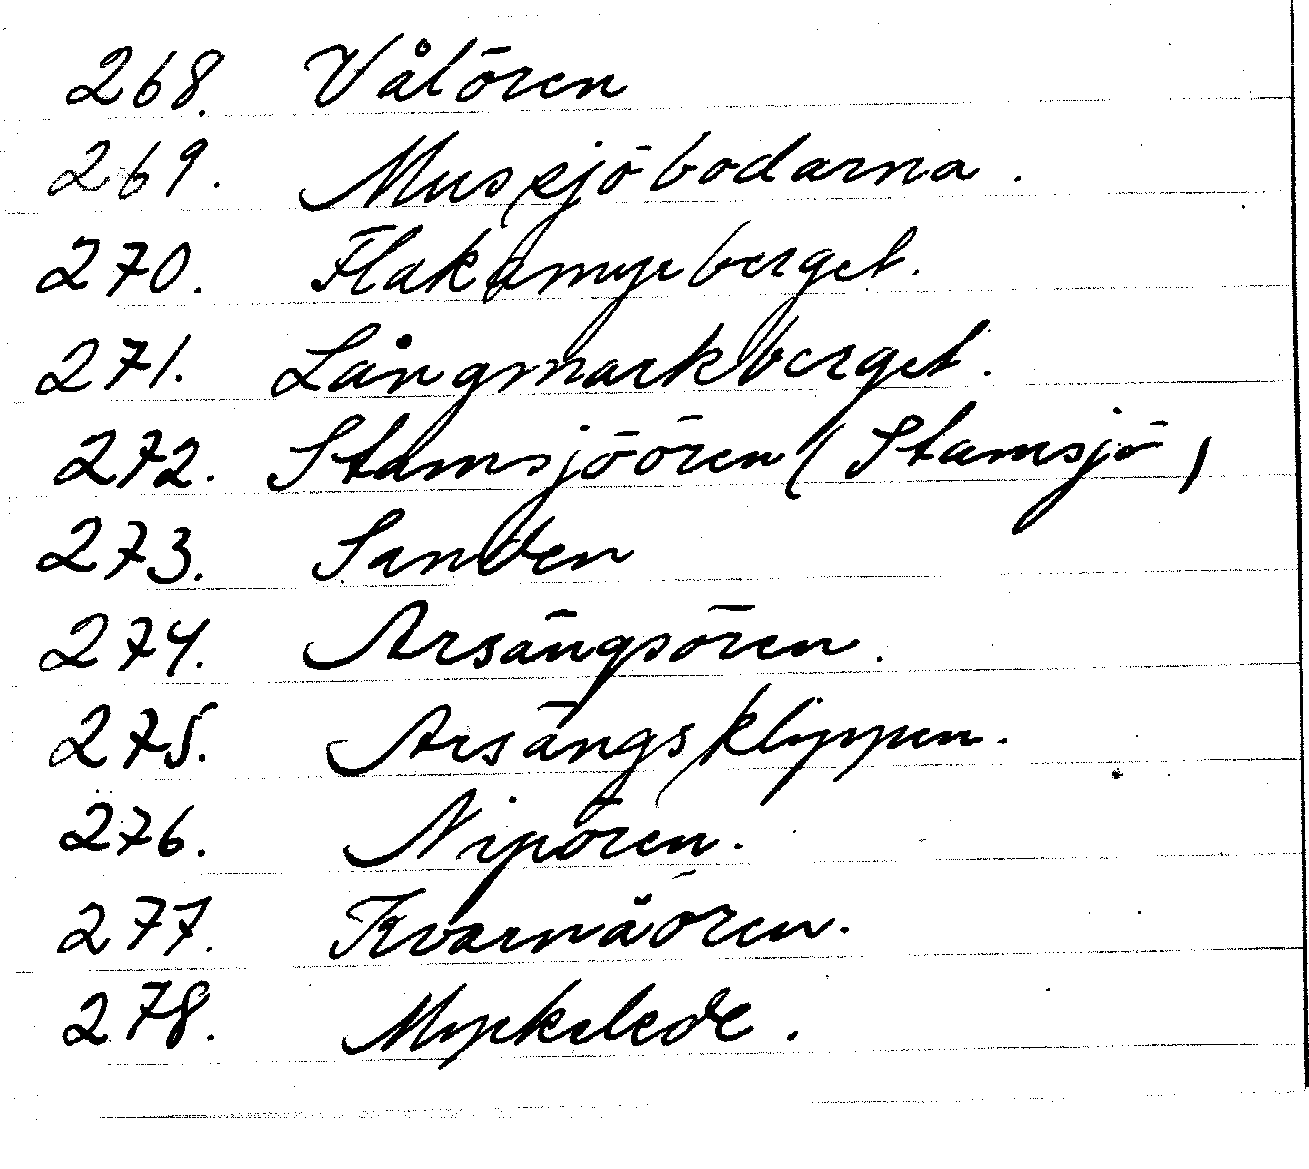 268. Vålören
269. Mussjöbodarna.
270. Flakamyrberget.
271. Långmarkberget.
272. Stamsjöören (Stamsjö)
273. Sanden
274. Arsängsören.
275. Arsängsklippen.
276. Nipören.
277. Kvarnåören.
278. Myckelede.